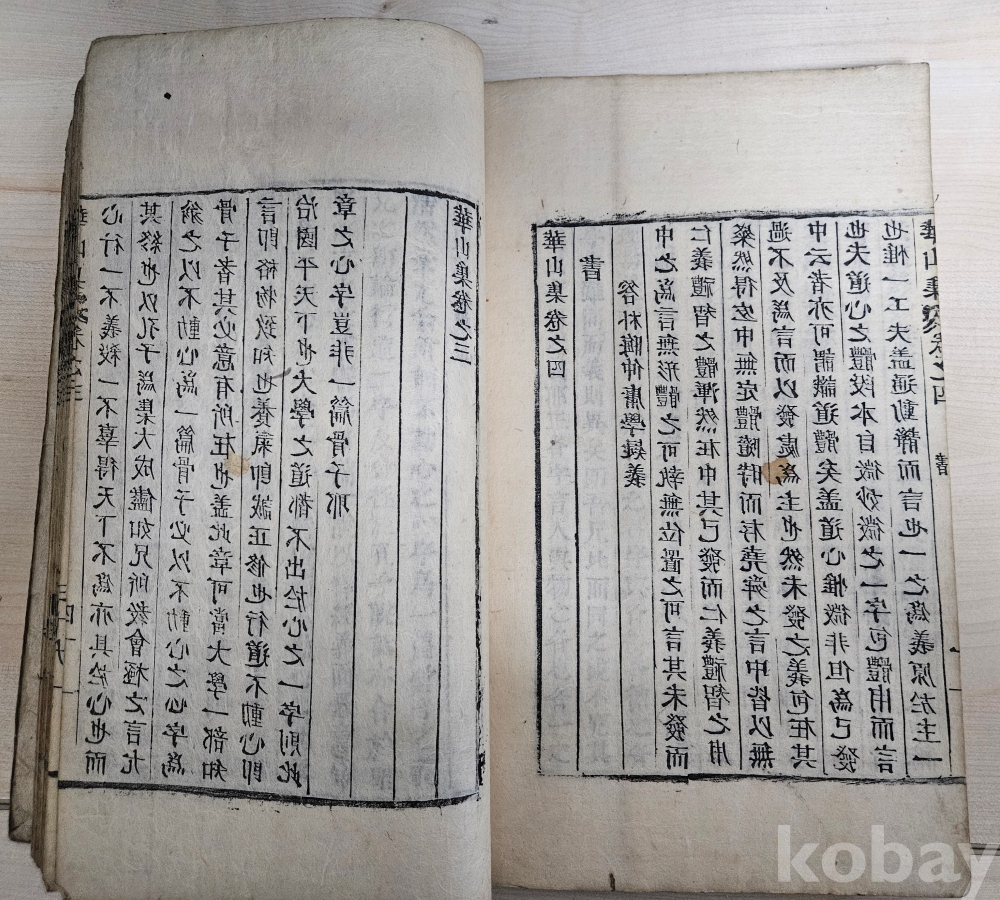 心行一不義殺一不辜得天下不爲亦具於心也而
其終也以孔子爲集大成儘如兄所教會極之言尤
翁之以不動心爲一篇骨子必以不動心之心字爲
骨子者其必意有所在也盖此章可當大學一部知
言即格物致知也養氣即誠正修也行道不動心即
治國平天下也大學之道都不出於心之一字則此
章之心字豈非一篇骨子耶
華山集卷之三
華山集卷之四
書
答朴晦仲庸學疑義
中之爲言無形體之可執無位置之可言其未發而
仁義禮智之體渾然在中其已發而仁義禮智之用
粲然得宜中無定體隨時而存堯舜之言中皆以無
過不及爲言而以發處爲主也然未發之義包在其
中云者亦可謂識道體矣盖道心惟微非但爲已發
也夫道心之體段本自微妙微之一字包體用而言
也惟一工夫盖通動靜而言也一之爲義原於主一
華山集卷之四
書
一
kobay